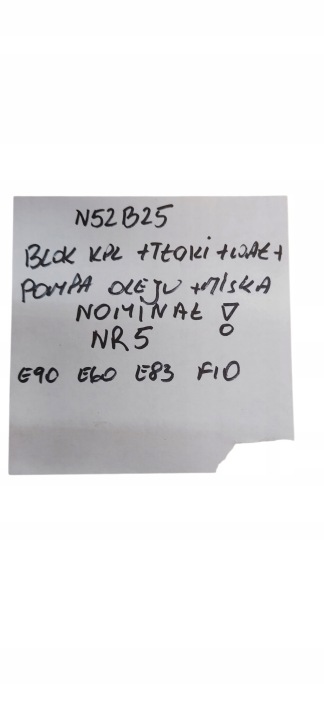 N52B25
BLOK KPL +TŁOKI +WAŁ+
POMPA OLEJU +MISKA
NOMINAŁ !
NR5
E90 E60 E83 F10